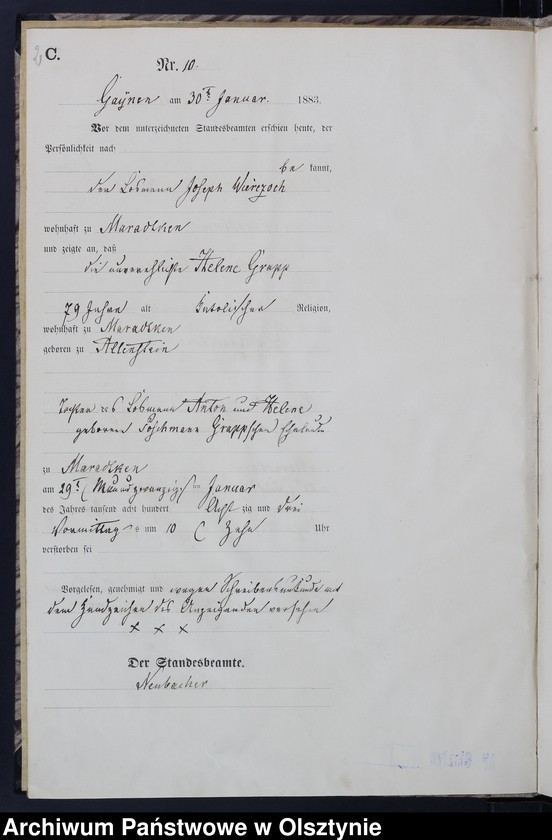 2
C.
Nr. 10.
am 30ten Januar 1883.
Vor dem unterzeichneten Standesbeamten erschien heute, der
Persönlichkeit nach
be kannt,
der Losmann Joseph
wohnhaft zu Maradtken
und zeigte an, daß
die unverehelichte Helene Grapp
79 Jahre alt katolischer Religion,
wohnhaft zu Maradtken
geboren zu Allenstein
Tochter des Losmann Anton und Helene
geborene Grappschen Eheleute
zu Maradtken
am 29t (Neunundzwanzigs) ten Januar
des Jahres tausend acht hundert Acht zig und drei
Vormittags um 10 (Zehn Uhr
verstorben sei
Vorgelesen, genehmigt und wegen Schreibensunkunde mit
dem Handzeichen des Anzeigenden versehen
x x x
Der Standesbeamte.
Neubacher
Archiwum Państwowe w Olsztynie